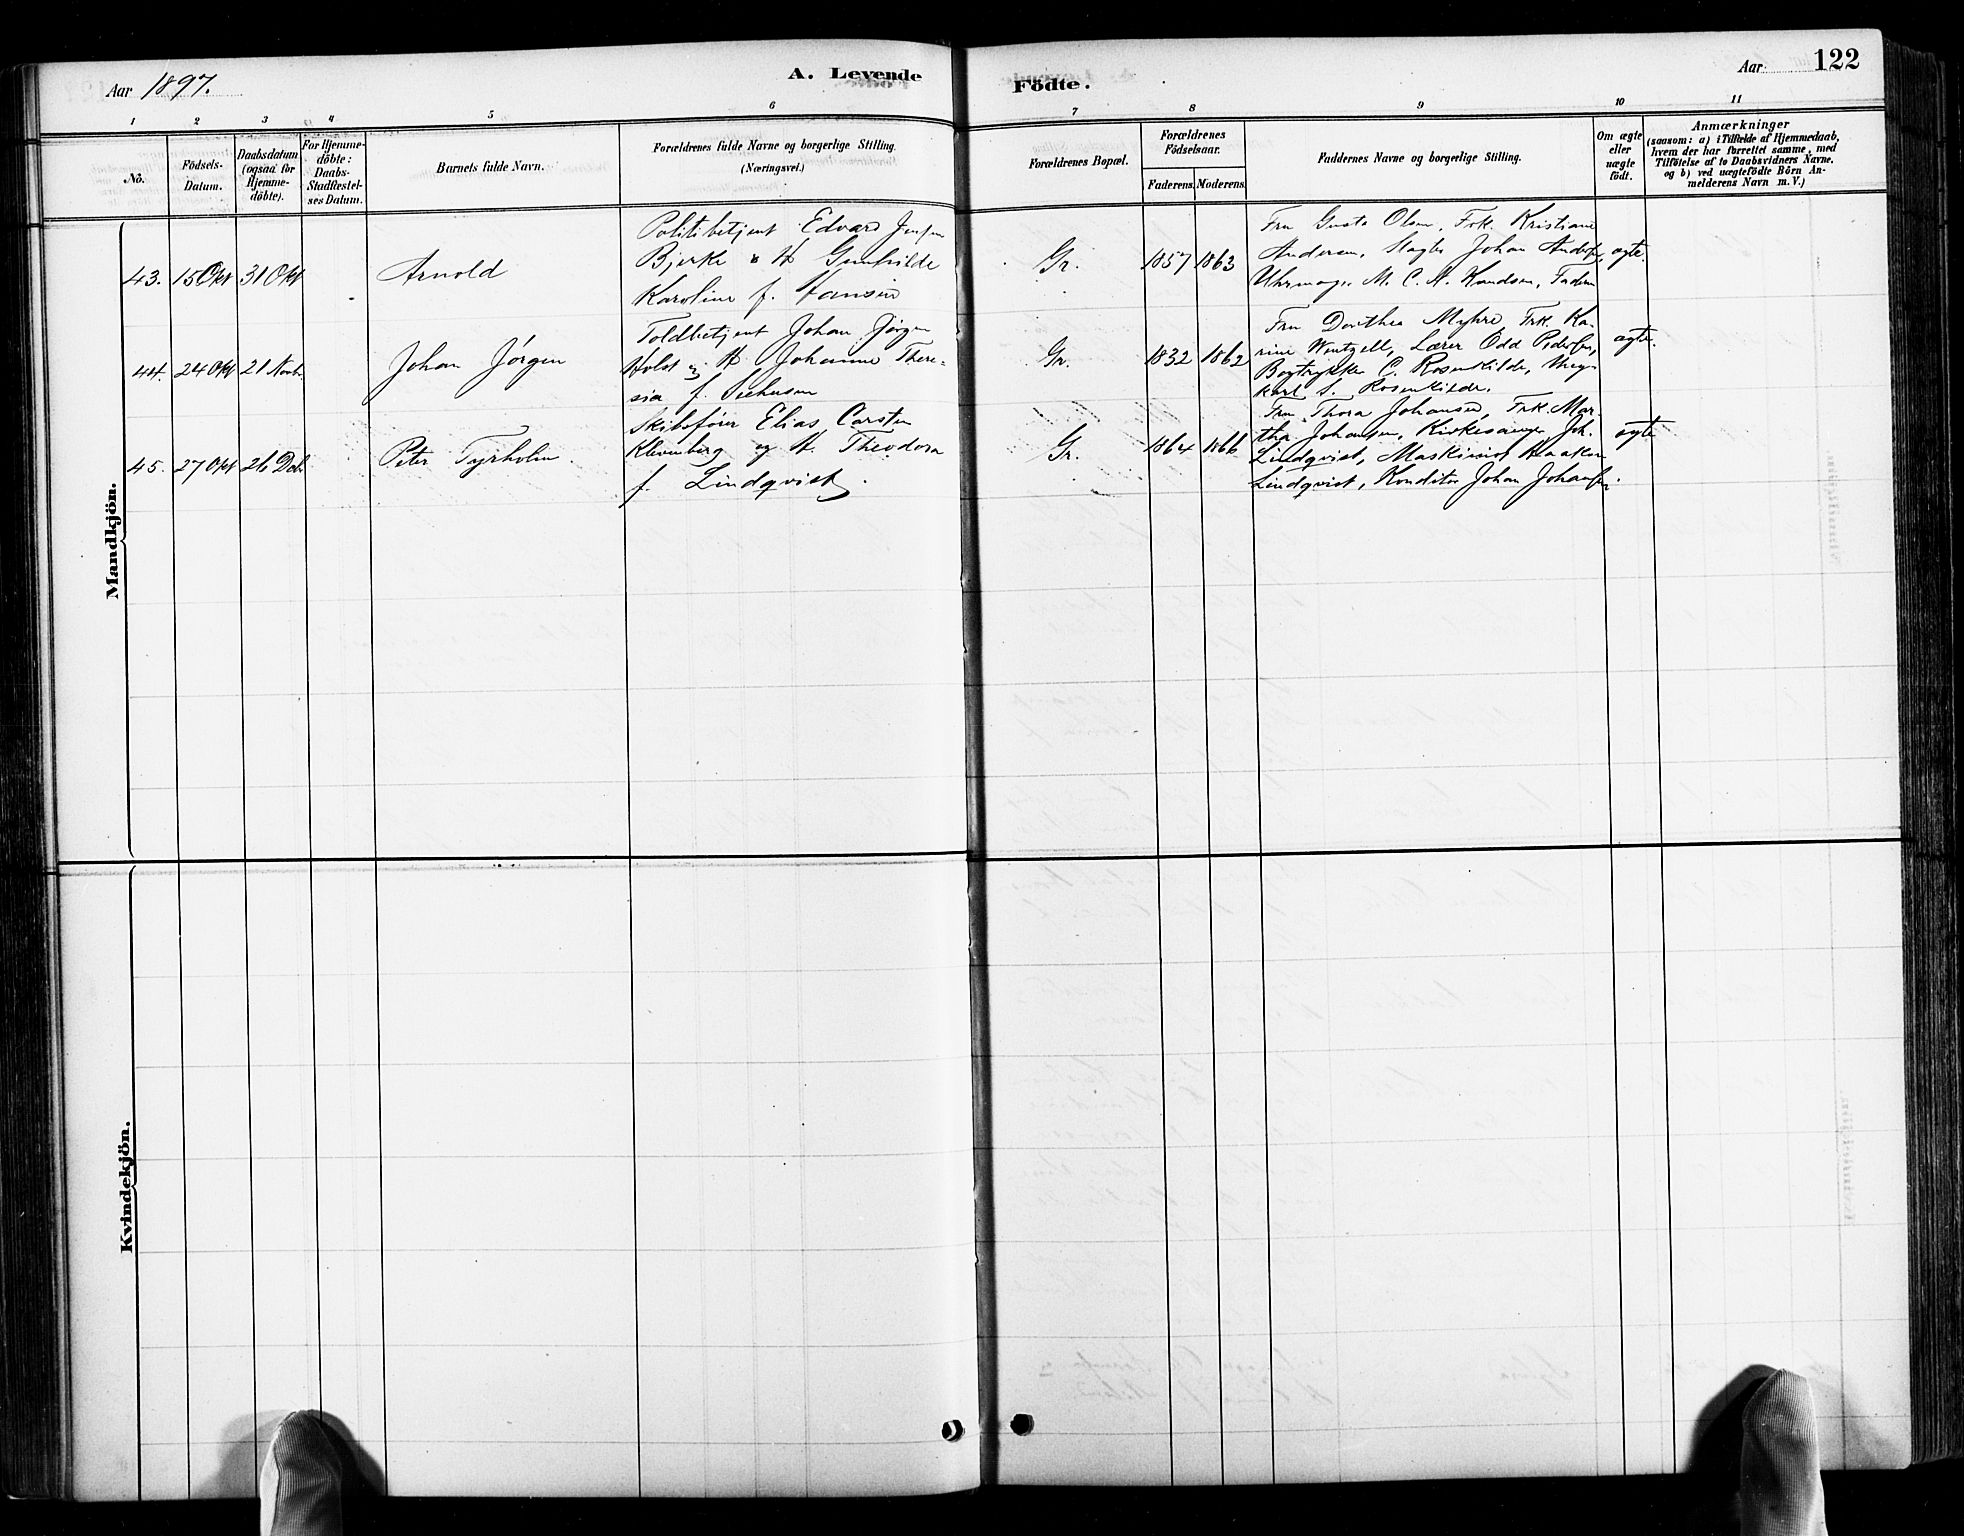 Aar 1897.
A. Levende
Födte.
Aar
122
1
2
3
4
5
6
7
8
9
10
11
No.
Födsels-
Datum.
Daabsdatum
(ogsaa for
Hjemme-
döbte).
For Hjemme-
döbte:
Daabs-
Stadfæstel-
ses Datum.
Barnets fulde Navn.
Forældrenes fulde Navne og borgerlige Stilling.
(Næringsvei.)
Forældrenes Bopæl.
Forældrenes
Födselsaar.
Faderens.
Moderens.
Faddernes Navne og borgerlige Stilling.
Om ægte
eller
uægte
födt.
Anmærkninger
(saasom: a) i Tilfælde af Hjemmedaab,
hvem der har forrettet samme, med
Tilföielse af to Daabsvidners Navne.
og b) ved uægtefödte Börn An-
melderens Navn m. V.)
Mandkjön.
43.
15 Okt
31 Okt
Arnold
Politibetjent Edvard Jensen
Bjerke & H Gunhilde
Karoline f. Hansen
Gr.
1857
1863
Fru Gusta Olsen, Frk. Kristiane
Andersen, Johan Andersen,
Uhrmager M. C. A. Knudsen, Faderen
ægte.
44.
24 Okt
21 Novb.
Johan Jörgen
Toldbetjent Johan Jörgen
Holst og H. Johanne There-
sia f. Seehusen
Gr.
1832
1862
Fru Dorthea Myhre, Frk. Ka-
rine Wentzell, Lærer Odd Pedersen,
Bogtrykker C. Rosenkilde,
S. Rosenkilde.
ægte.
45.
27 Okt
26 Deb.
Peter Tyrholm
Skibsförer Elias Carsten
Klevenberg og H. Theodora
f. Lindqvist.
Gr.
1864
1866
Fru Thora Johansen, Frk. Mar-
tha Johansen, Kirkesanger Joh.
Lindqvist, Maskinist Haakon
Lindqvist, Konditor Johan Johansen.
ægte
Kvindekjön.